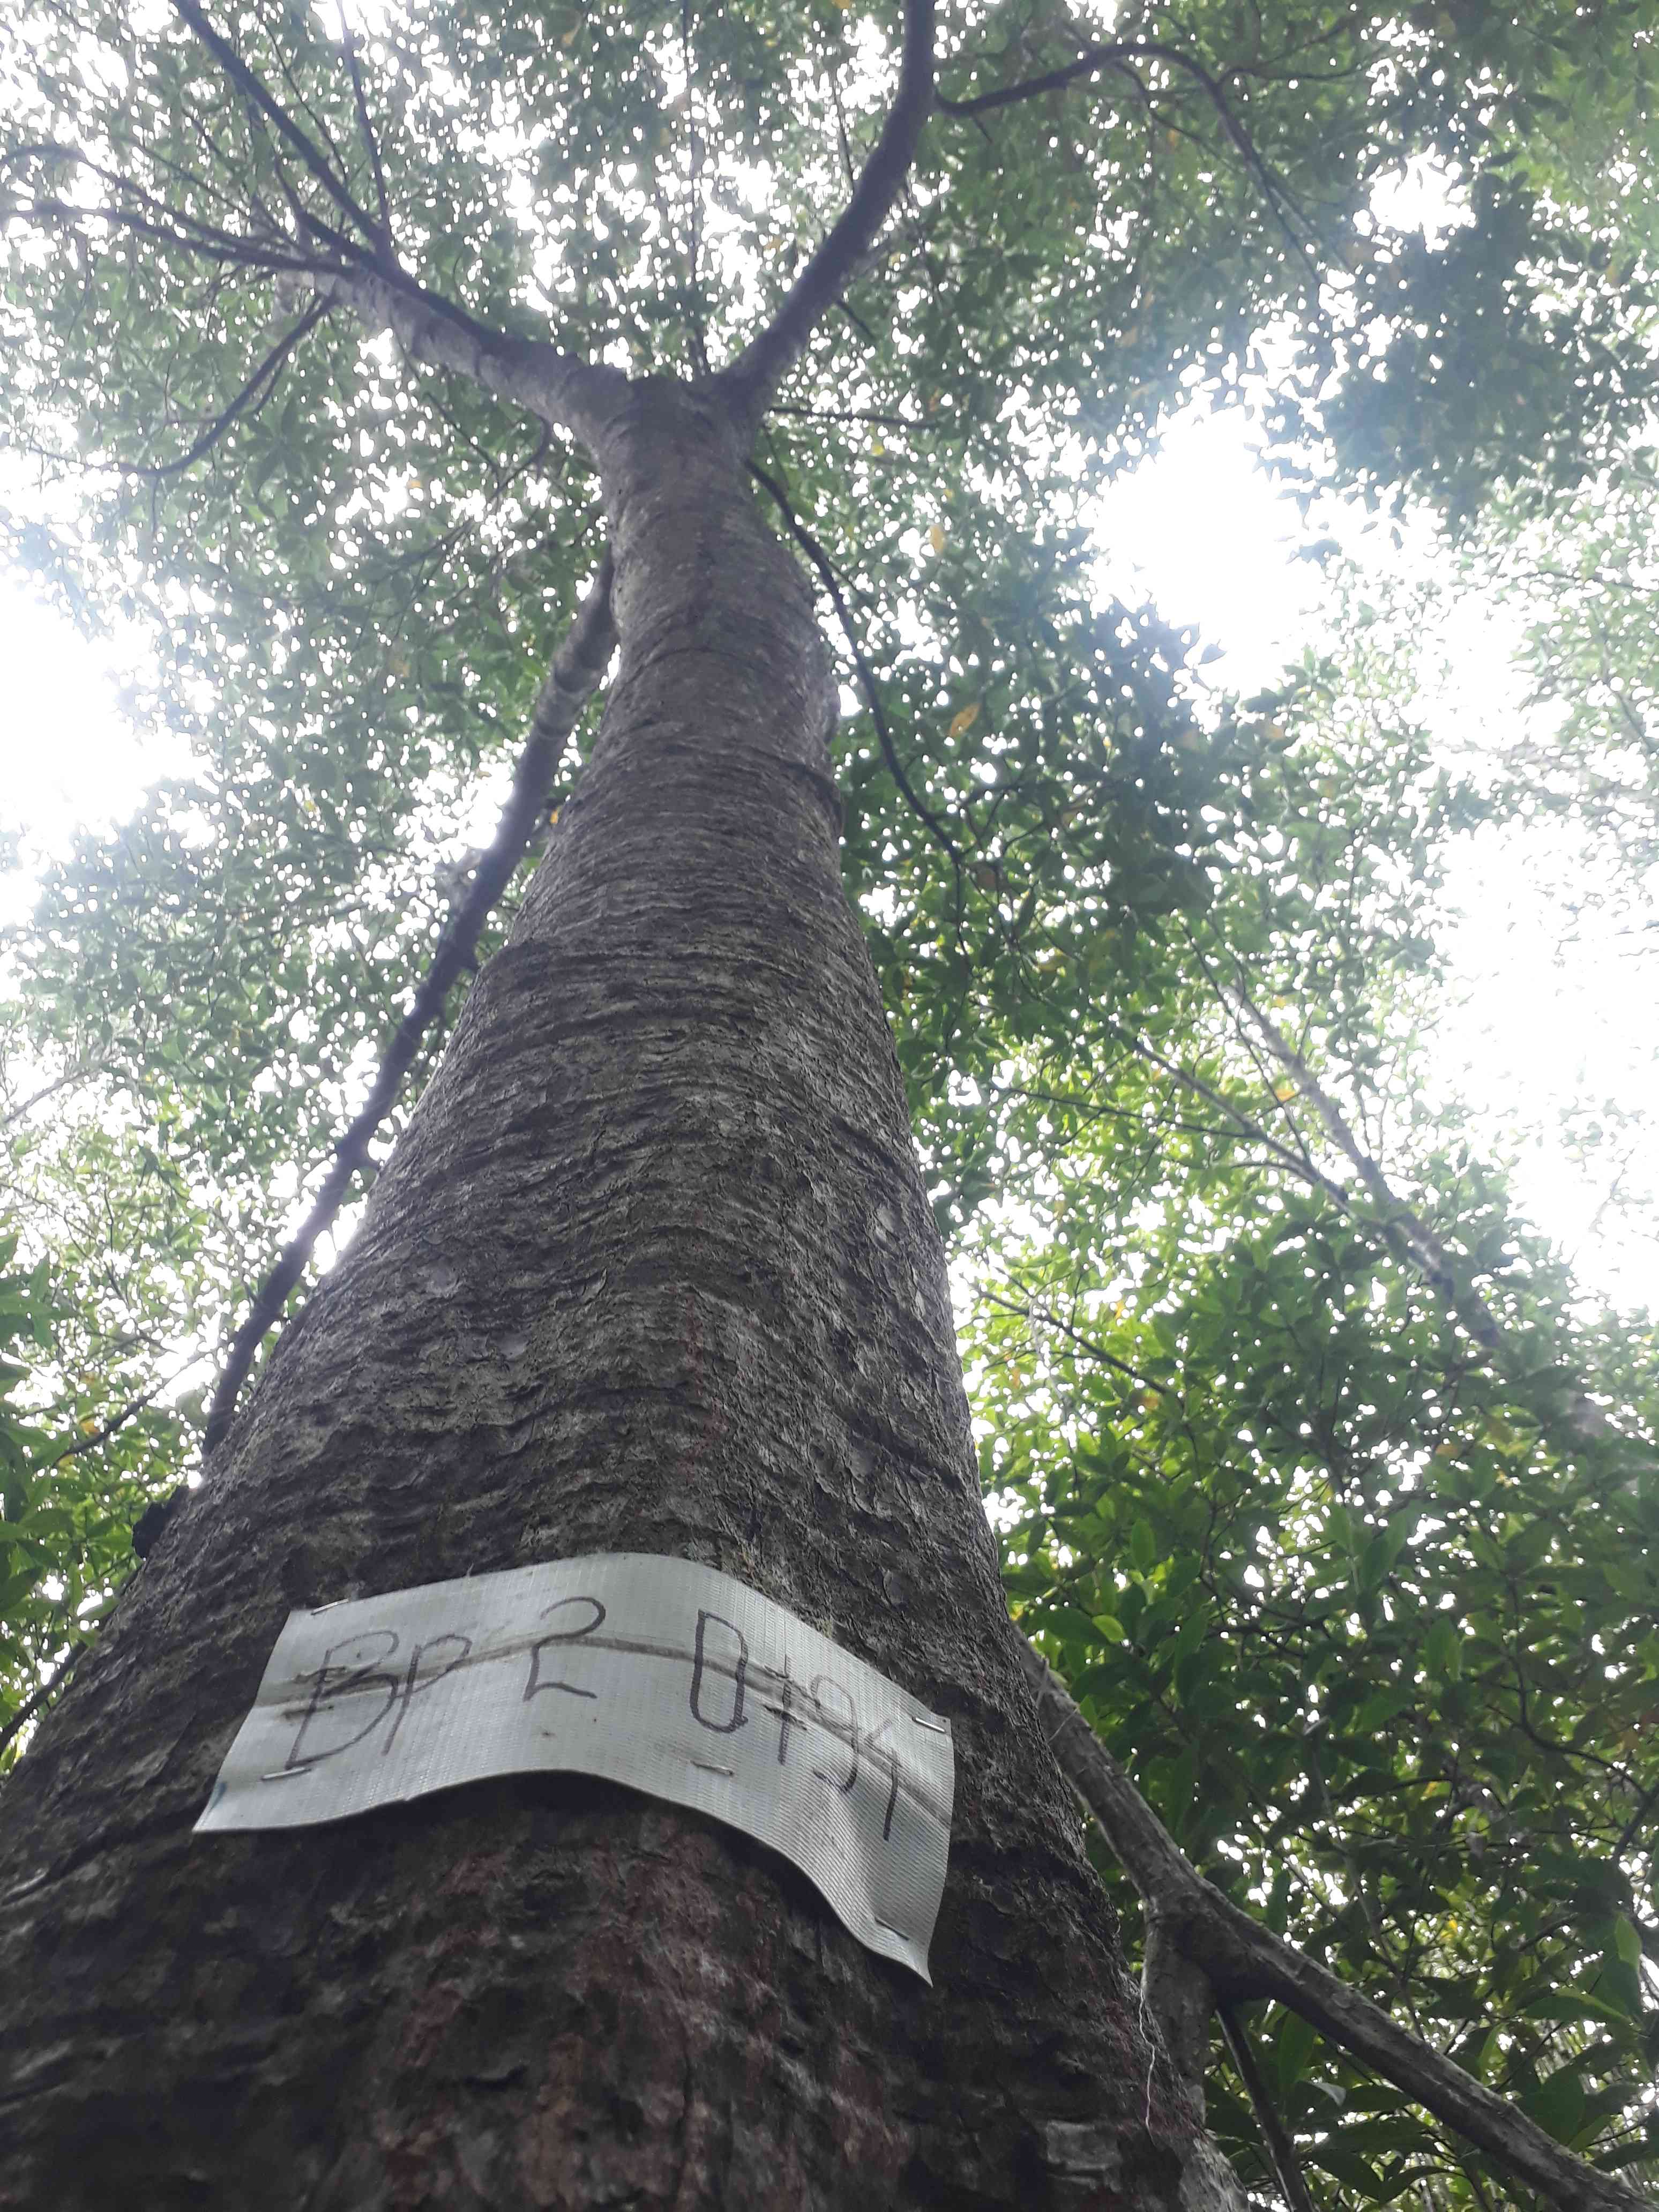 BP 2 0194